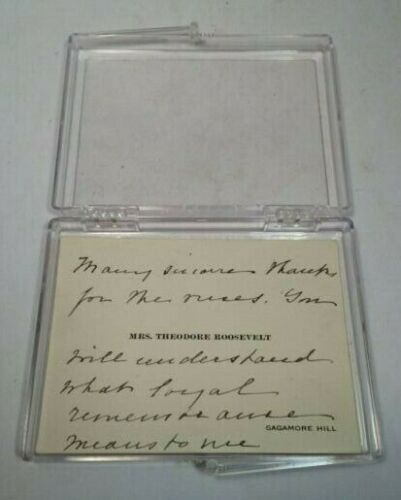 Many sincere thanks
for the roses. You
MRS. THEODORE ROOSEVELT
will understand
what loyal
remembrance
SAGAMORE HILL
means to me